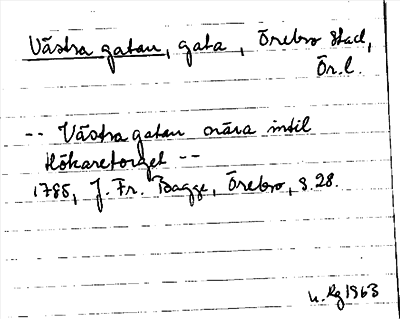 Västra gatan, gata, Örebro stad,
Ör.l.
-- Västra gatan nära intil
Hökaretorget --
1785, J. Fr. Bagge, Örebro, s. 28.
Rg 1963